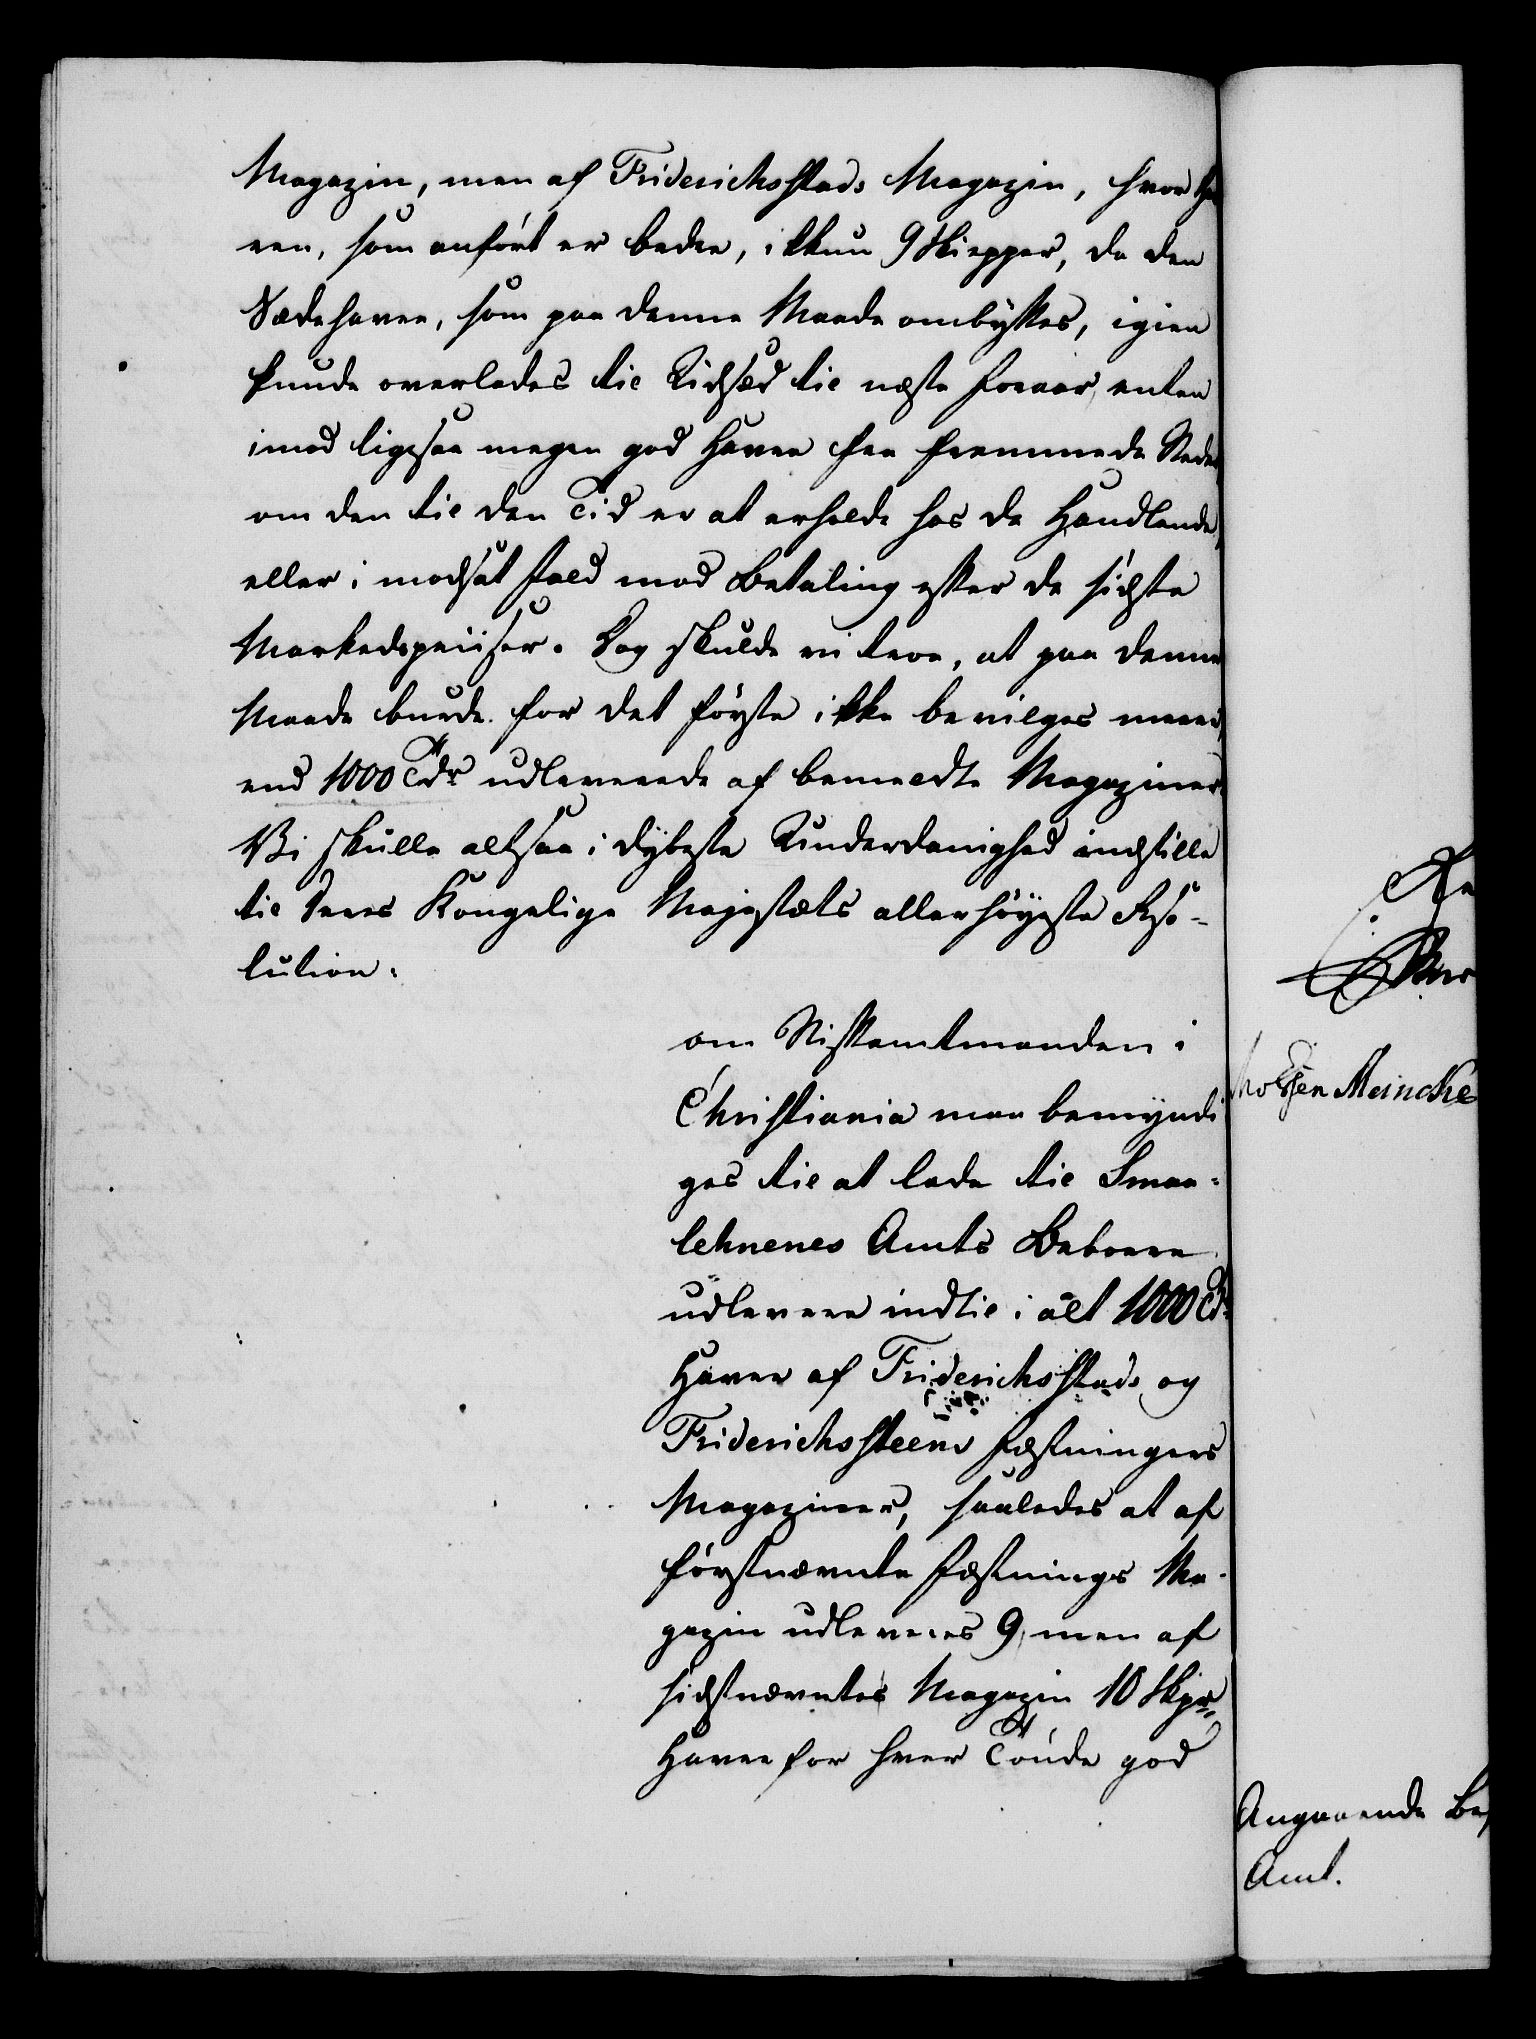 Magazin, men af Friderichsstads Magazin, hvor Ha
ren, som anført er bedre, ikkun 9 Skiepper, da den
Sædehavre, som paa denne Maade ombyttes, igien
kunde overlades til Udsæd til næste Foraar, enten
imod ligesaa megen god Havre fra fremmede Steder
om den til den Tid er at erholde hos de Handlende,
eller i modsat Fald mod Betaling efter de sidste
Markedspriiser. Dog skulde vi troe, at paa denne
Maade burde for det første ikke bevilges meere,
end 1000 Tdr udleverede af bemeldte Magaziner.
Vi skulle altsaa i dybeste Underdanighed indstille
til Deres Kongelige Majestæts allerhøyeste Reso-
lution:
om Stiftamtmanden i
Christiania maa bemyndi
ges til at lade til Smaa-
lehnenes Amts Beboere
udlevere indtil i alt 1000 Tdr
Havre af Friderichsstads og
Friderichssteens Fæstningers
Magaziner, saaledes at af
førstnævnte Fæstnings Ma-
gazin udleveres 9, men af
sidstnævntes Magazin 10 Skpr
Havre for hver Tønde god
Meincke
Angaaende
Amt.